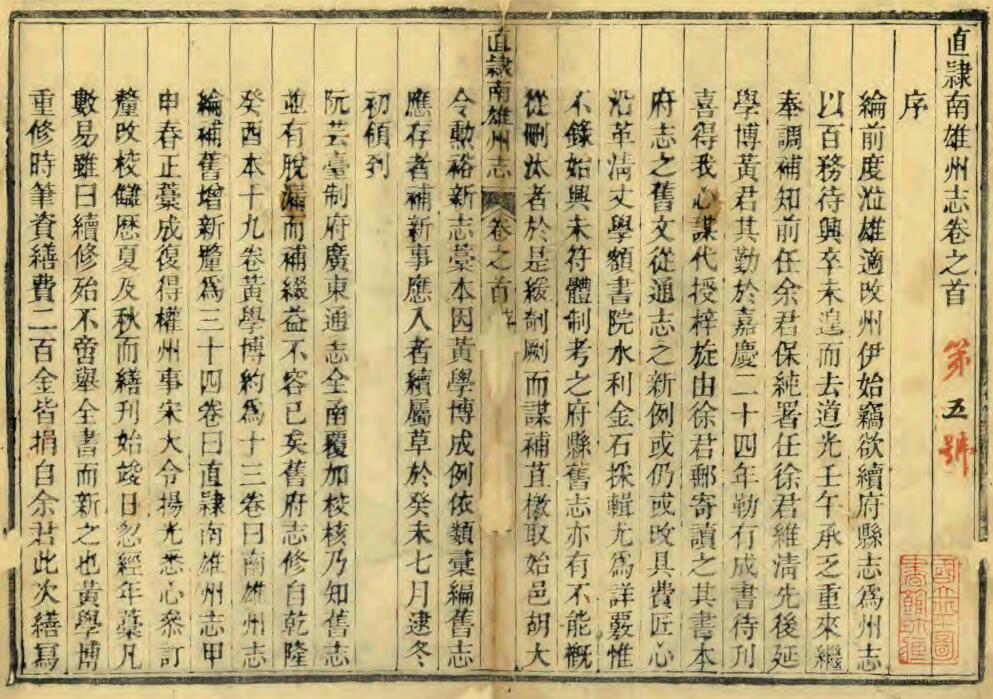 直隷南雄州志卷之首
第五號
序
綸前度涖雄適改州伊始竊欲續府縣志爲州志
以百務待興卒未遑而去道光壬午承乏重來繼
奉調補知前任余君保純署任徐君維清先後延
學博黃君其勤於嘉慶二十四年勒有成書待刊
喜得我心謀代授梓旋由徐君郵寄讀之其書本
府志之舊文從通志之新例或仍或改具費匠心
沿革清丈學額書院水利金石採輯尤爲詳覈惟
不錄始興未符體制考之府縣舊志亦有不能概
從刪汰者於是緩剞劂而謀補苴檄取始邑胡大
直隷南雄州志 卷之首 序
令勳裕新志藁本因黃學博成例依類彙編舊志
應存者補新事應入者續屬草於癸未七月逮冬
初頒到
阮芸臺制府廣東通志全函覆加校核乃知舊志
並有脫漏而補綴益不容已矣舊府志修自乾隆
癸酉本十九卷黃學博約爲十三卷曰南雄州志
綸補舊增新釐爲三十四卷曰直隷南雄州志甲
申春正藁成復得權州事宋大令揚光悉心叅訂
釐改校讎歷夏及秋而繕刊始竣日忽經年藁凡
數易雖曰續修殆不啻舉全書而新之也黃學博
重修時筆資繕費二百金皆捐自余君此次繕寫